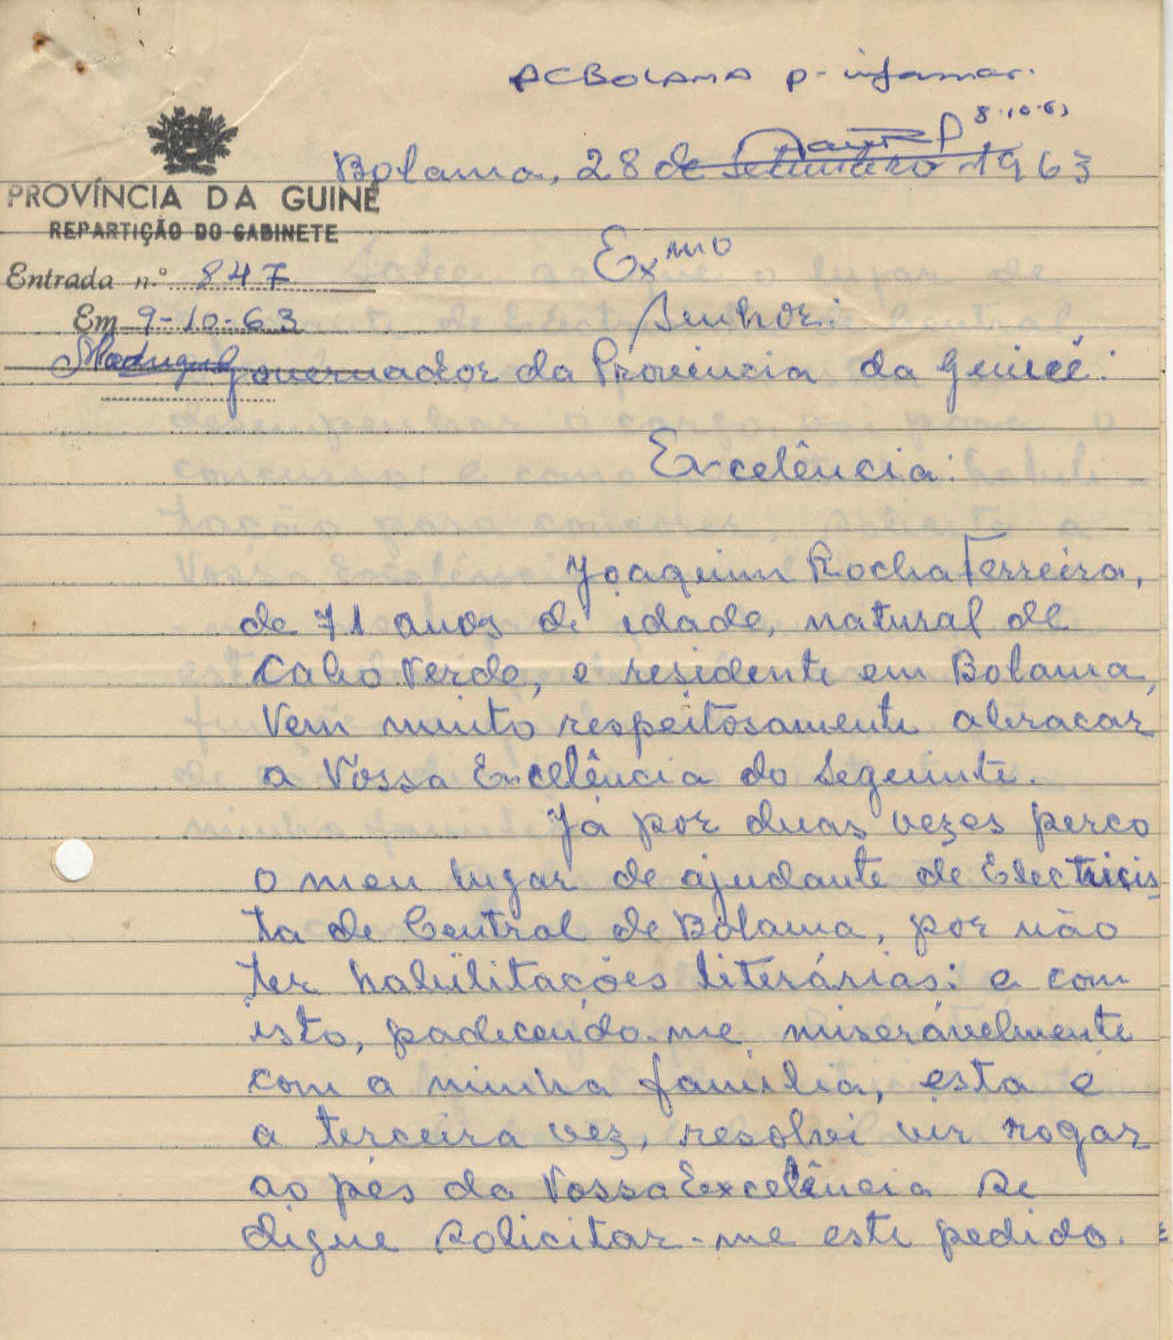 ACBOLAMA p- informar.
8-10-63
Bolama, 28 de Setembro 1963
PROVÍNCIA DA GUINÉ
REPARTIÇÃO DO GABINETE
Exmo
Entrada n.º 847
Senhor:
Em 9-10-63
Governador da Província da Guiné:
Excelência:
Joaquim Rocha Ferreira,
de 71 anos de idade, natural de
Cabo Verde, e residente em Bolama,
Vem muito respeitosamente abracar
a Vossa Excelência do Seguinte.
Já por duas vezes perco
o meu lugar de ajudante de Electricis
ta de Central de Bolama, por não
ter habilitações literárias: e com
isto, padecendo-me miserávelmente
com a minha família, esta é
a terceira vez, resolvi vir rogar
ao pés da Vossa Excelência se
digne solicitar-me este pedido.